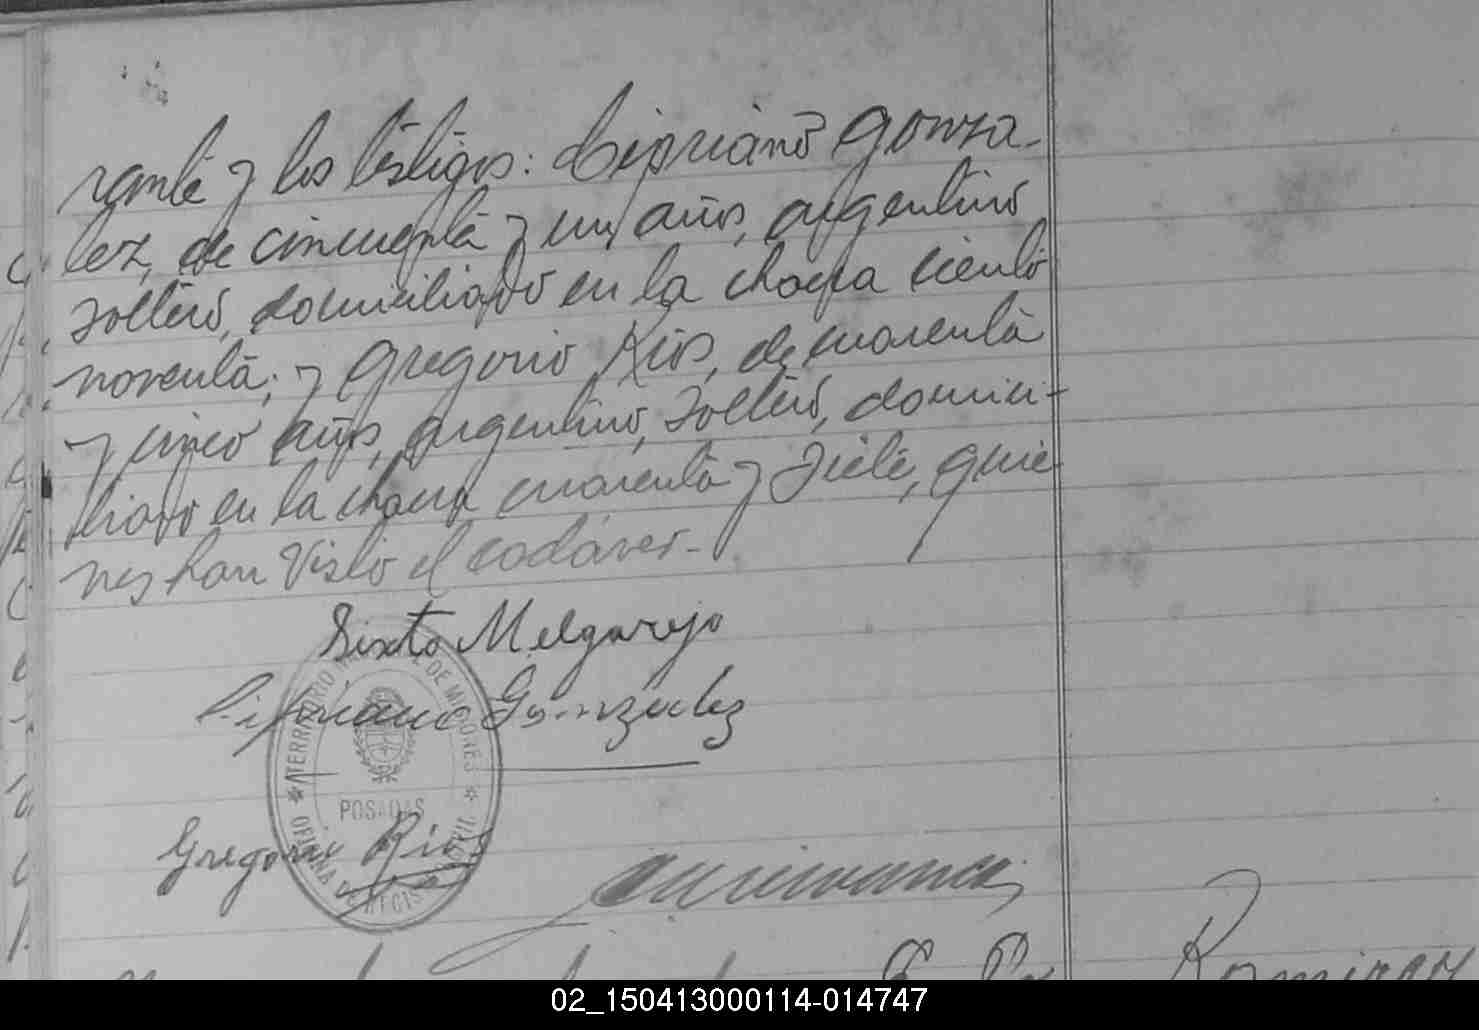 rante y los testigos: Cipriano Gonza-
lez, de cincuenta y un años, argentino
soltero, domiciliado en la chacra ciento
noventa; y Gregorio Rios, de cuarenta
y cinco años, argentino, soltero, domici-
liado en la chacra cuarenta y siete, quie-
nes han visto el cadáver.-
Sixto Melgarejo
Cipriano Gonzalez
Gregorio Rios
TERRITORIO DE MISIONES
POSADAS
OFICINA DE REGISTRO CIVIL
Ramirez
02_150413000114-014747